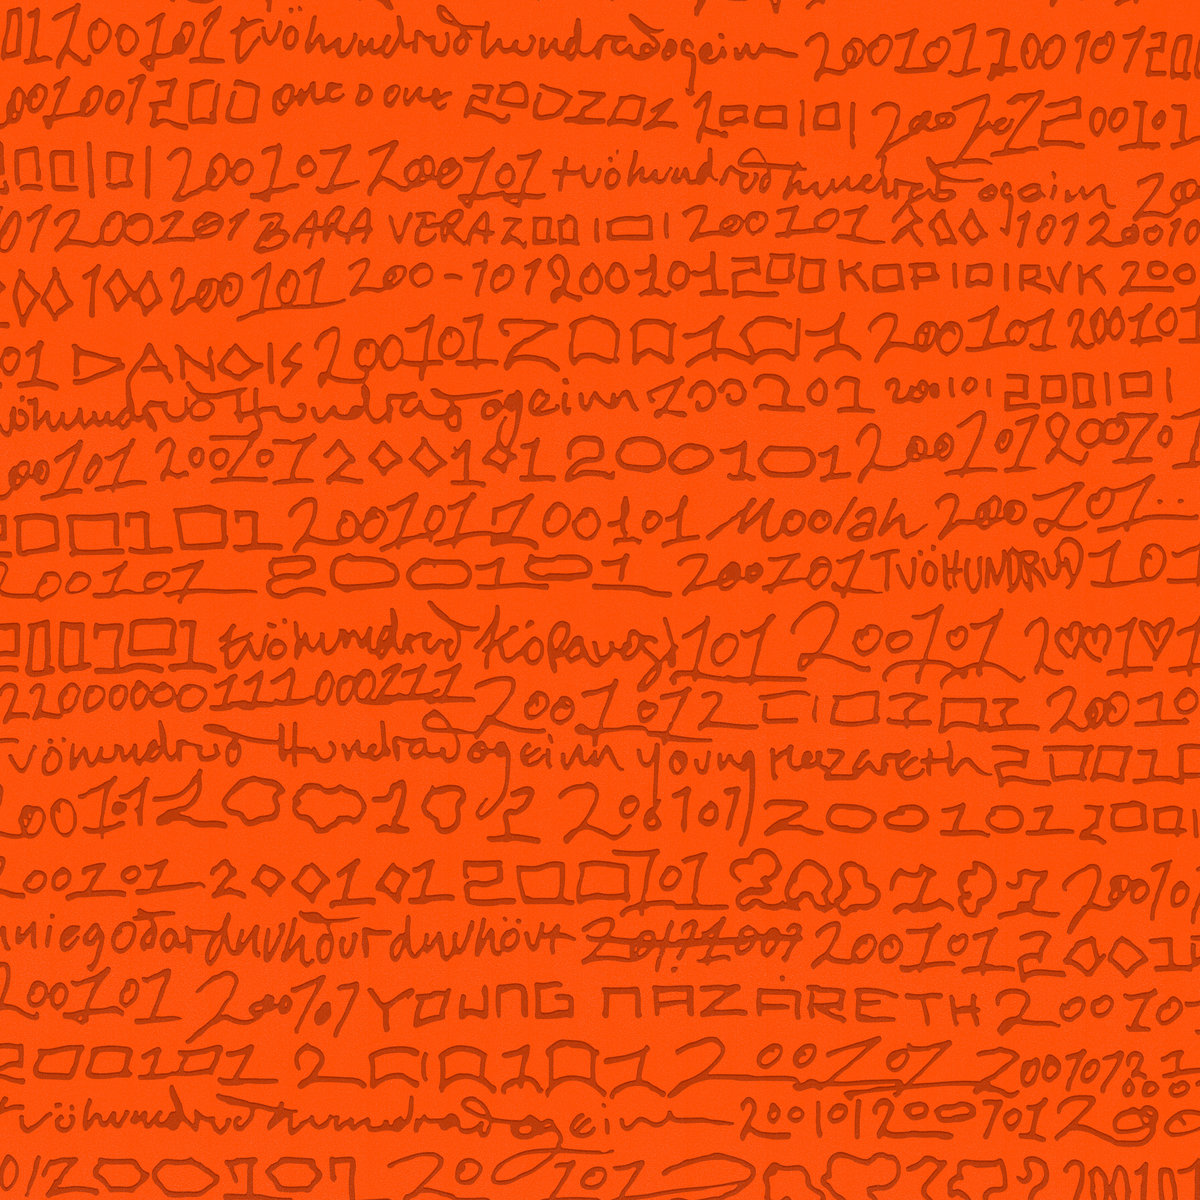 200101 tvöhundruðhundraðogeinn 200101 200101 200
200100 1200 one 0 one 200201 200101 200101 200101
200101 200101 200101 tvöhundruð hundrað ogeinn 200
101 200201 BARA VERA 200101 200101 200 101 200101
00 100 200101 200-101 200101 200 KOP 101 RVK 200
01 DANO1S 200101 200101 200101 200101
tvöhundruð Hundrað ogeinn 200101 200101 200101
200101 200101 200101 200101 200101 200101
200101 200101 200101 Moolah 200201..
200101 200101 200101 TVÖHUNDRUÐ 101
200101 tvöhundruð KóPavogi 101 200101 200101
22000000111000111 200101 2 00101 200101
tvöhundruð Hundrað ogeinn young Nazareth 200101
200101 200101 200101 200101 200
200101 200101 200101 200101 200101
200101 200101 200101
200101 200101 YOUNG NAZARETH 200101
200101 200101 200101 200101
tvöhundruðhundraðogeinn 200101 200101 200
01 200101 200101 200101